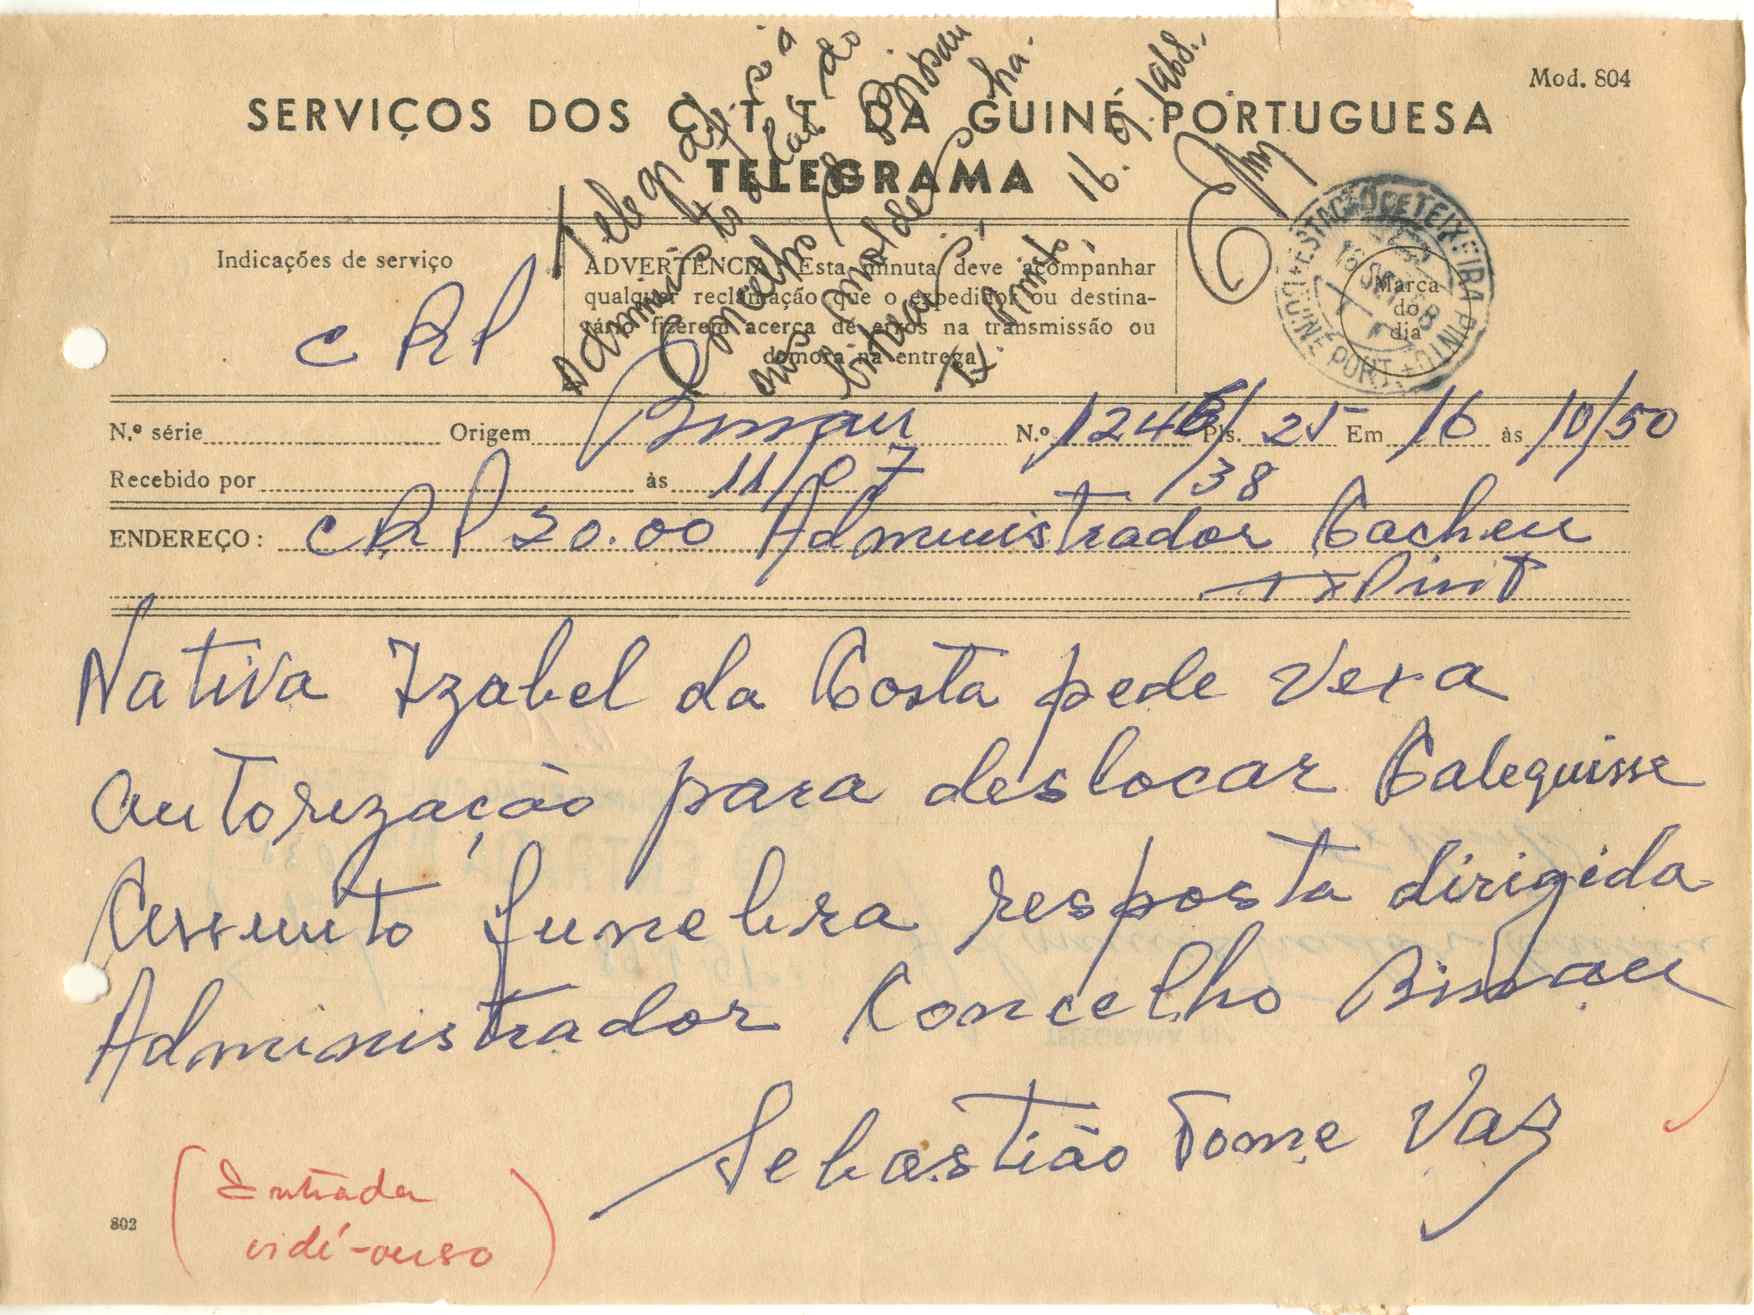 Mod. 804
SERVIÇOS DOS C. T. T. DA GUINÉ PORTUGUESA
TELEGRAMA
Telegrafe-se à
Administração do
Concelho de Bissau
16.9.1968.
Indicações de serviço
CRP
ADVERTÊNCIA: Esta minuta deve acompanhar
qualquer reclamação que o expedidor ou destina-
tário fizerem acerca de erros na transmissão ou
demora na entrega
ESTAÇÃO C. TEIXEIRA PINTO
GUINÉ PORT.
16 SET. 68
Marca
do
dia
N.º série Origem Bissau N.º 1246/ Pls. 25 Em 16 às 10/50
Recebido por às 11/07 /38
ENDEREÇO: CRP 20.00 Administrador Cacheu
TXPinT
Nativa Izabel da Costa pede Vexa
autorização para deslocar Calequisse
assunto funebra resposta dirigida
Administrador Concelho Bissau
Sebastião Tome Vaz
(Entrada
vidé-verso)
802